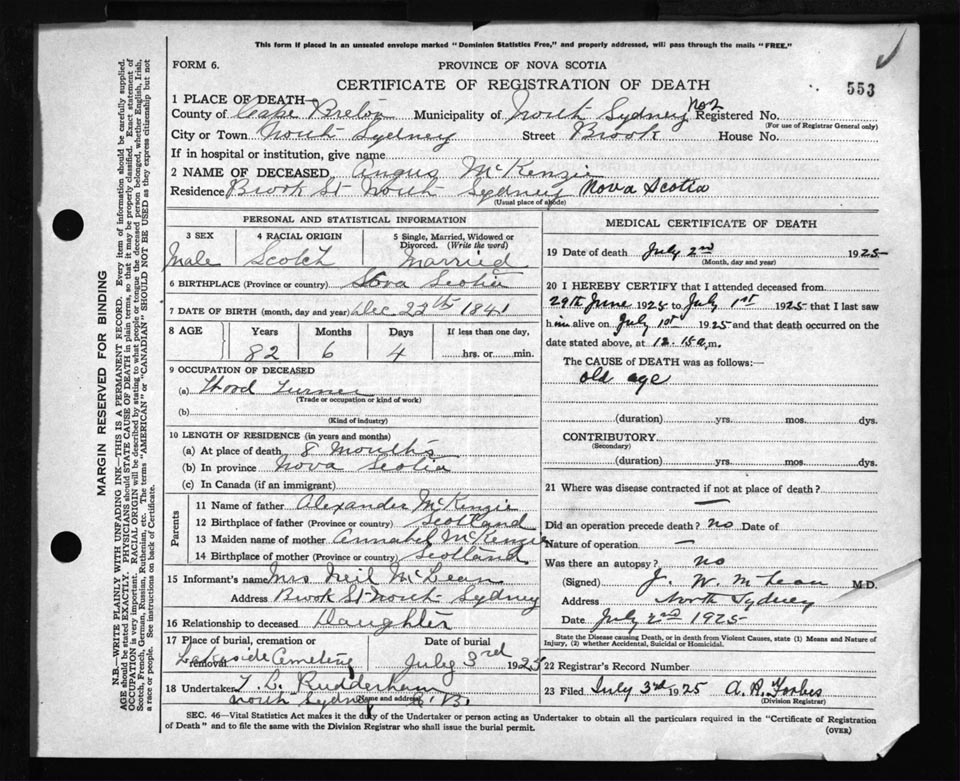 This form if placed in an unsealed envelope marked "Dominion Statistics Free," and properly addressed, will pass through the mails "FREE."
FORM 6.
PROVINCE OF NOVA SCOTIA
CERTIFICATE OF REGISTRATION OF DEATH
553
1 PLACE OF DEATH—
County of Cape Breton Municipality of North Sydney No 2 Registered No.
(For use of Registrar General only)
City or Town North Sydney Street Brook House No.
If in hospital or institution, give name
2 NAME OF DECEASED Angus McKenzie
Residence Brook St North Sydney Nova Scotia
(Usual place of abode)
PERSONAL AND STATISTICAL INFORMATION
3 SEX
Male
4 RACIAL ORIGIN
Scotch
5 Single, Married, Widowed or Divorced. (Write the word)
Married
6 BIRTHPLACE (Province or country) Nova Scotia
7 DATE OF BIRTH (month, day and year) Dec 22th 1841
8 AGE Years Months Days If less than one day,
82 6 4 hrs. or min.
9 OCCUPATION OF DECEASED
(a) Wood Turner
(Trade or occupation or kind of work)
(b)
(Kind of industry)
10 LENGTH OF RESIDENCE (in years and months)
(a) At place of death 8 Months
(b) In province Nova Scotia
(c) In Canada (if an immigrant)
Parents
11 Name of father Alexander McKenzie
12 Birthplace of father (Province or country) Scotland
13 Maiden name of mother Annabel McKenzie
14 Birthplace of mother (Province or country) Scotland
15 Informant's name Mrs Neil McLean
Address Brook St North Sydney
16 Relationship to deceased Daughter
17 Place of burial, cremation or removal Date of burial
Lakeside Cemetery July 3rd 1925
18 Undertaker T. C. Rudderham
(Name and address)
North Sydney C. B.
MEDICAL CERTIFICATE OF DEATH
19 Date of death July 2nd 1925
(Month, day and year)
20 I HEREBY CERTIFY that I attended deceased from
29th June 1925 to July 1st 1925 that I last saw
him alive on July 1st 1925 and that death occurred on
date stated above, at 12.15 a.m.
The CAUSE of DEATH was as follows:—
old age
(duration) yrs. mos. dys.
CONTRIBUTORY
(Secondary)
(duration) yrs. mos. dys.
21 Where was disease contracted if not at place of death?
—
Did an operation precede death? no Date of
Nature of operation —
Was there an autopsy? no
(Signed) J. W. McLean M.D.
Address North Sydney
Date July 2nd 1925
State the Disease causing Death, or in death from Violent Causes, state (1) Means and Nature of Injury, (2) whether Accidental, Suicidal or Homicidal.
22 Registrar's Record Number
23 Filed July 3rd 1925 A. R. Forbes
(Division Registrar)
SEC. 46—Vital Statistics Act makes it the duty of the Undertaker or person acting as Undertaker to obtain all the particulars required in the "Certificate of Registration
of Death" and to file the same with the Division Registrar who shall issue the burial permit.
(OVER)
MARGIN RESERVED FOR BINDING
N.B.—WRITE PLAINLY WITH UNFADING INK—THIS IS A PERMANENT RECORD. Every item of information should be carefully supplied.
AGE should be stated EXACTLY. PHYSICIANS should STATE CAUSE OF DEATH in plain terms, so that it may be properly classified. Exact statement of
OCCUPATION is very important. RACIAL ORIGIN will be described by stating to what people or tongue the deceased person belonged, whether English, Irish,
Scotch, French, German, Russian, Ruthenian, etc. The terms "AMERICAN" or "CANADIAN" SHOULD NOT BE USED as they express citizenship but not
a race or people. See instructions on back of Certificate.